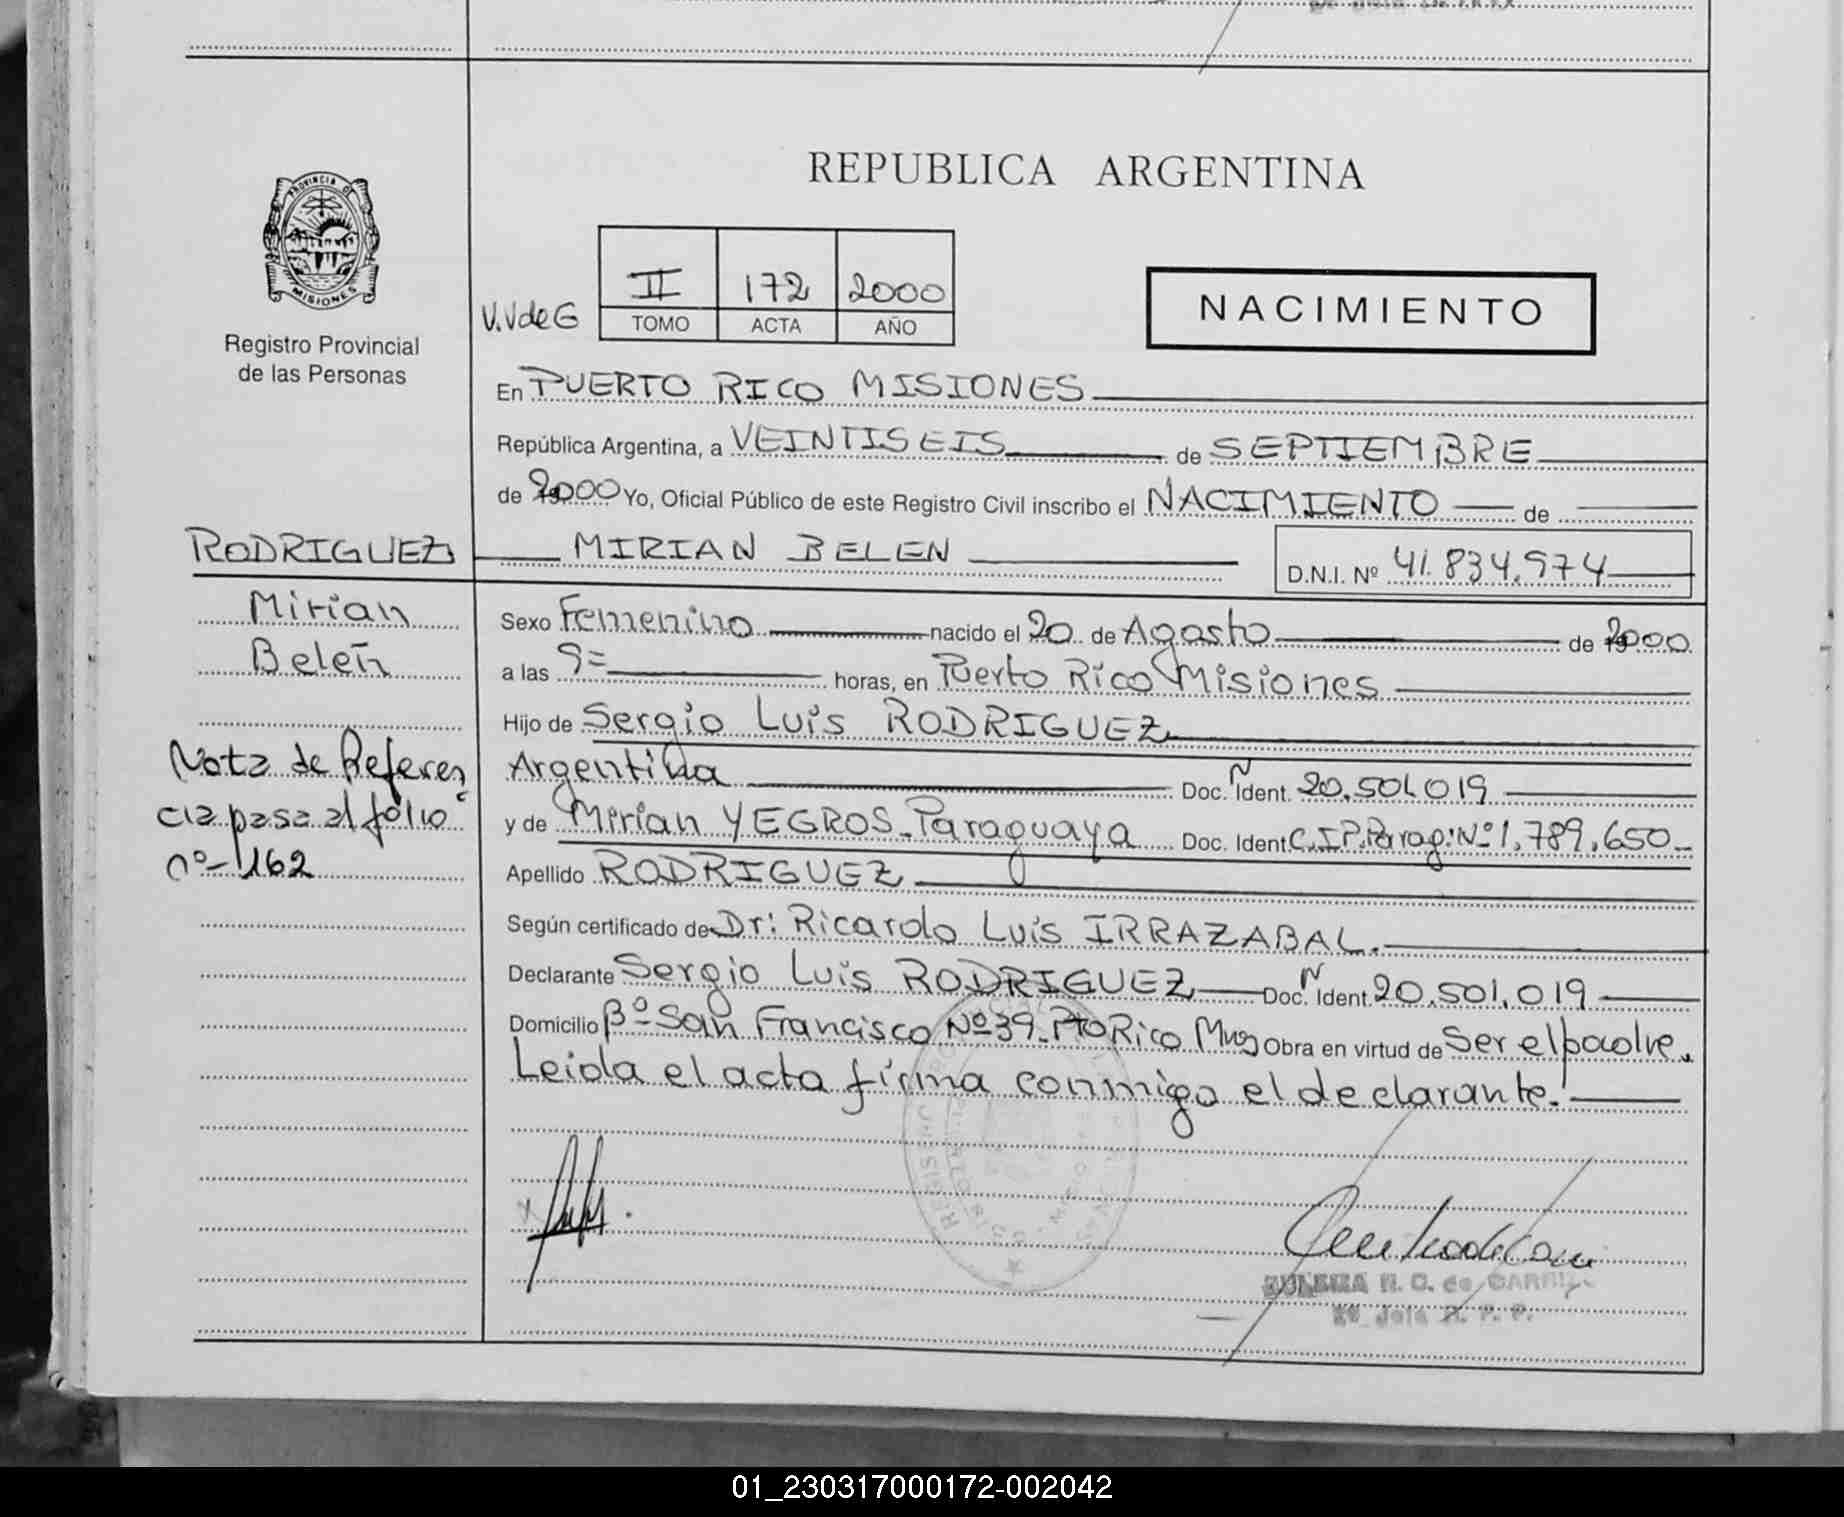 PROVINCIA D
MISIONES
Registro Provincial
de las Personas
REPUBLICA ARGENTINA
V.V de G
II 172 2000
TOMO ACTA AÑO
NACIMIENTO
En PUERTO RICO MISIONES
República Argentina, a VEINTISEIS de SEPTIEMBRE
de 2000 Yo, Oficial Público de este Registro Civil inscribo el NACIMIENTO de
RODRIGUEZ MIRIAN BELEN D.N.I. Nº 41.834.974
Mirian
Belen
Sexo Femenino nacido el 20 de Agosto de 2000
a las 9= horas, en Puerto Rico Misiones
Hijo de Sergio Luis RODRIGUEZ
Nota de Referen
cia pasa al folio
nº 162
Argentina Doc. N Ident. 20.501.019
y de Mirian YEGROS-Paraguaya Doc. Ident C.I.P.Parag:Nº1.789.650
Apellido RODRIGUEZ
Según certificado de Dr: Ricardo Luis IRRAZABAL.
Declarante Sergio Luis RODRIGUEZ Doc. N Ident. 20.501.019
Domicilio Bº San Francisco Nº39-Pto Rico Mnes Obra en virtud de Ser el padre.
Leida el acta firma conmigo el declarante.
ZULEMA R. C. de
Jefa R. P. P.
01_230317000172-002042